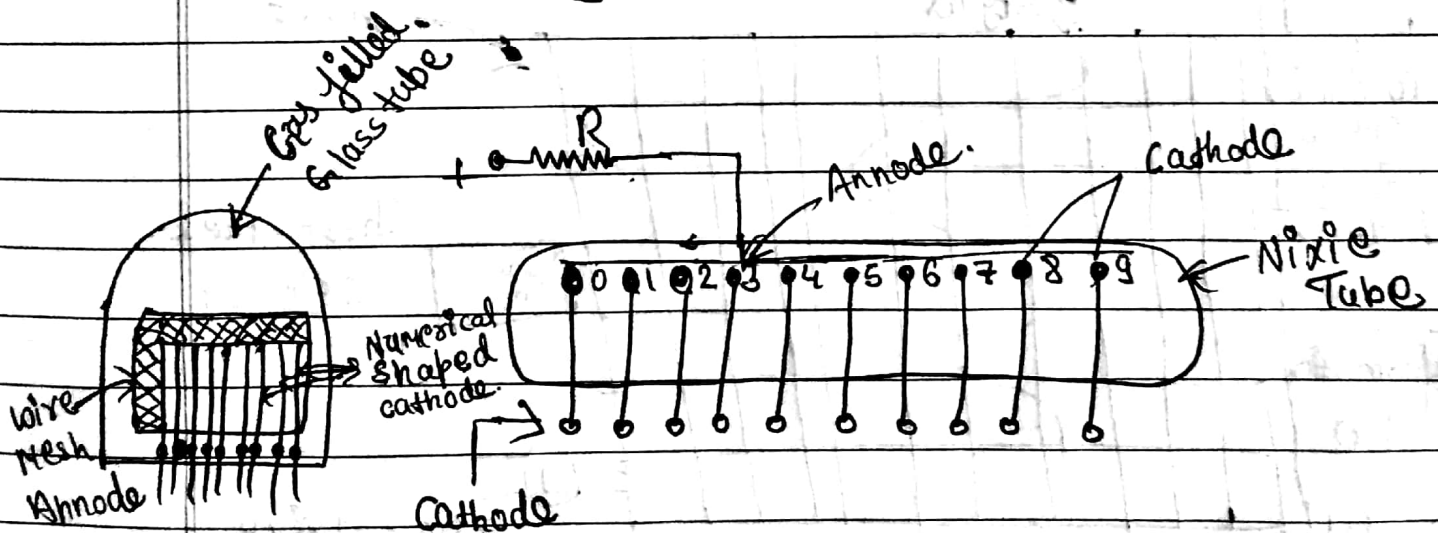 Gas filled.
Glass tube
R
+
Annode.
Cathode
Nixie
Tube
0 1 2 3 4 5 6 7 8 9
Numerical
shaped
cathode.
Wire
Mesh
Annode
Cathode